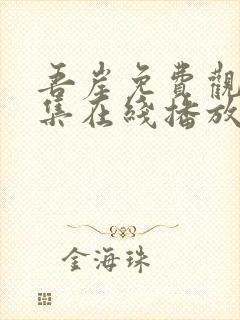 吾岸免費觀
集在綫播放
金海珠